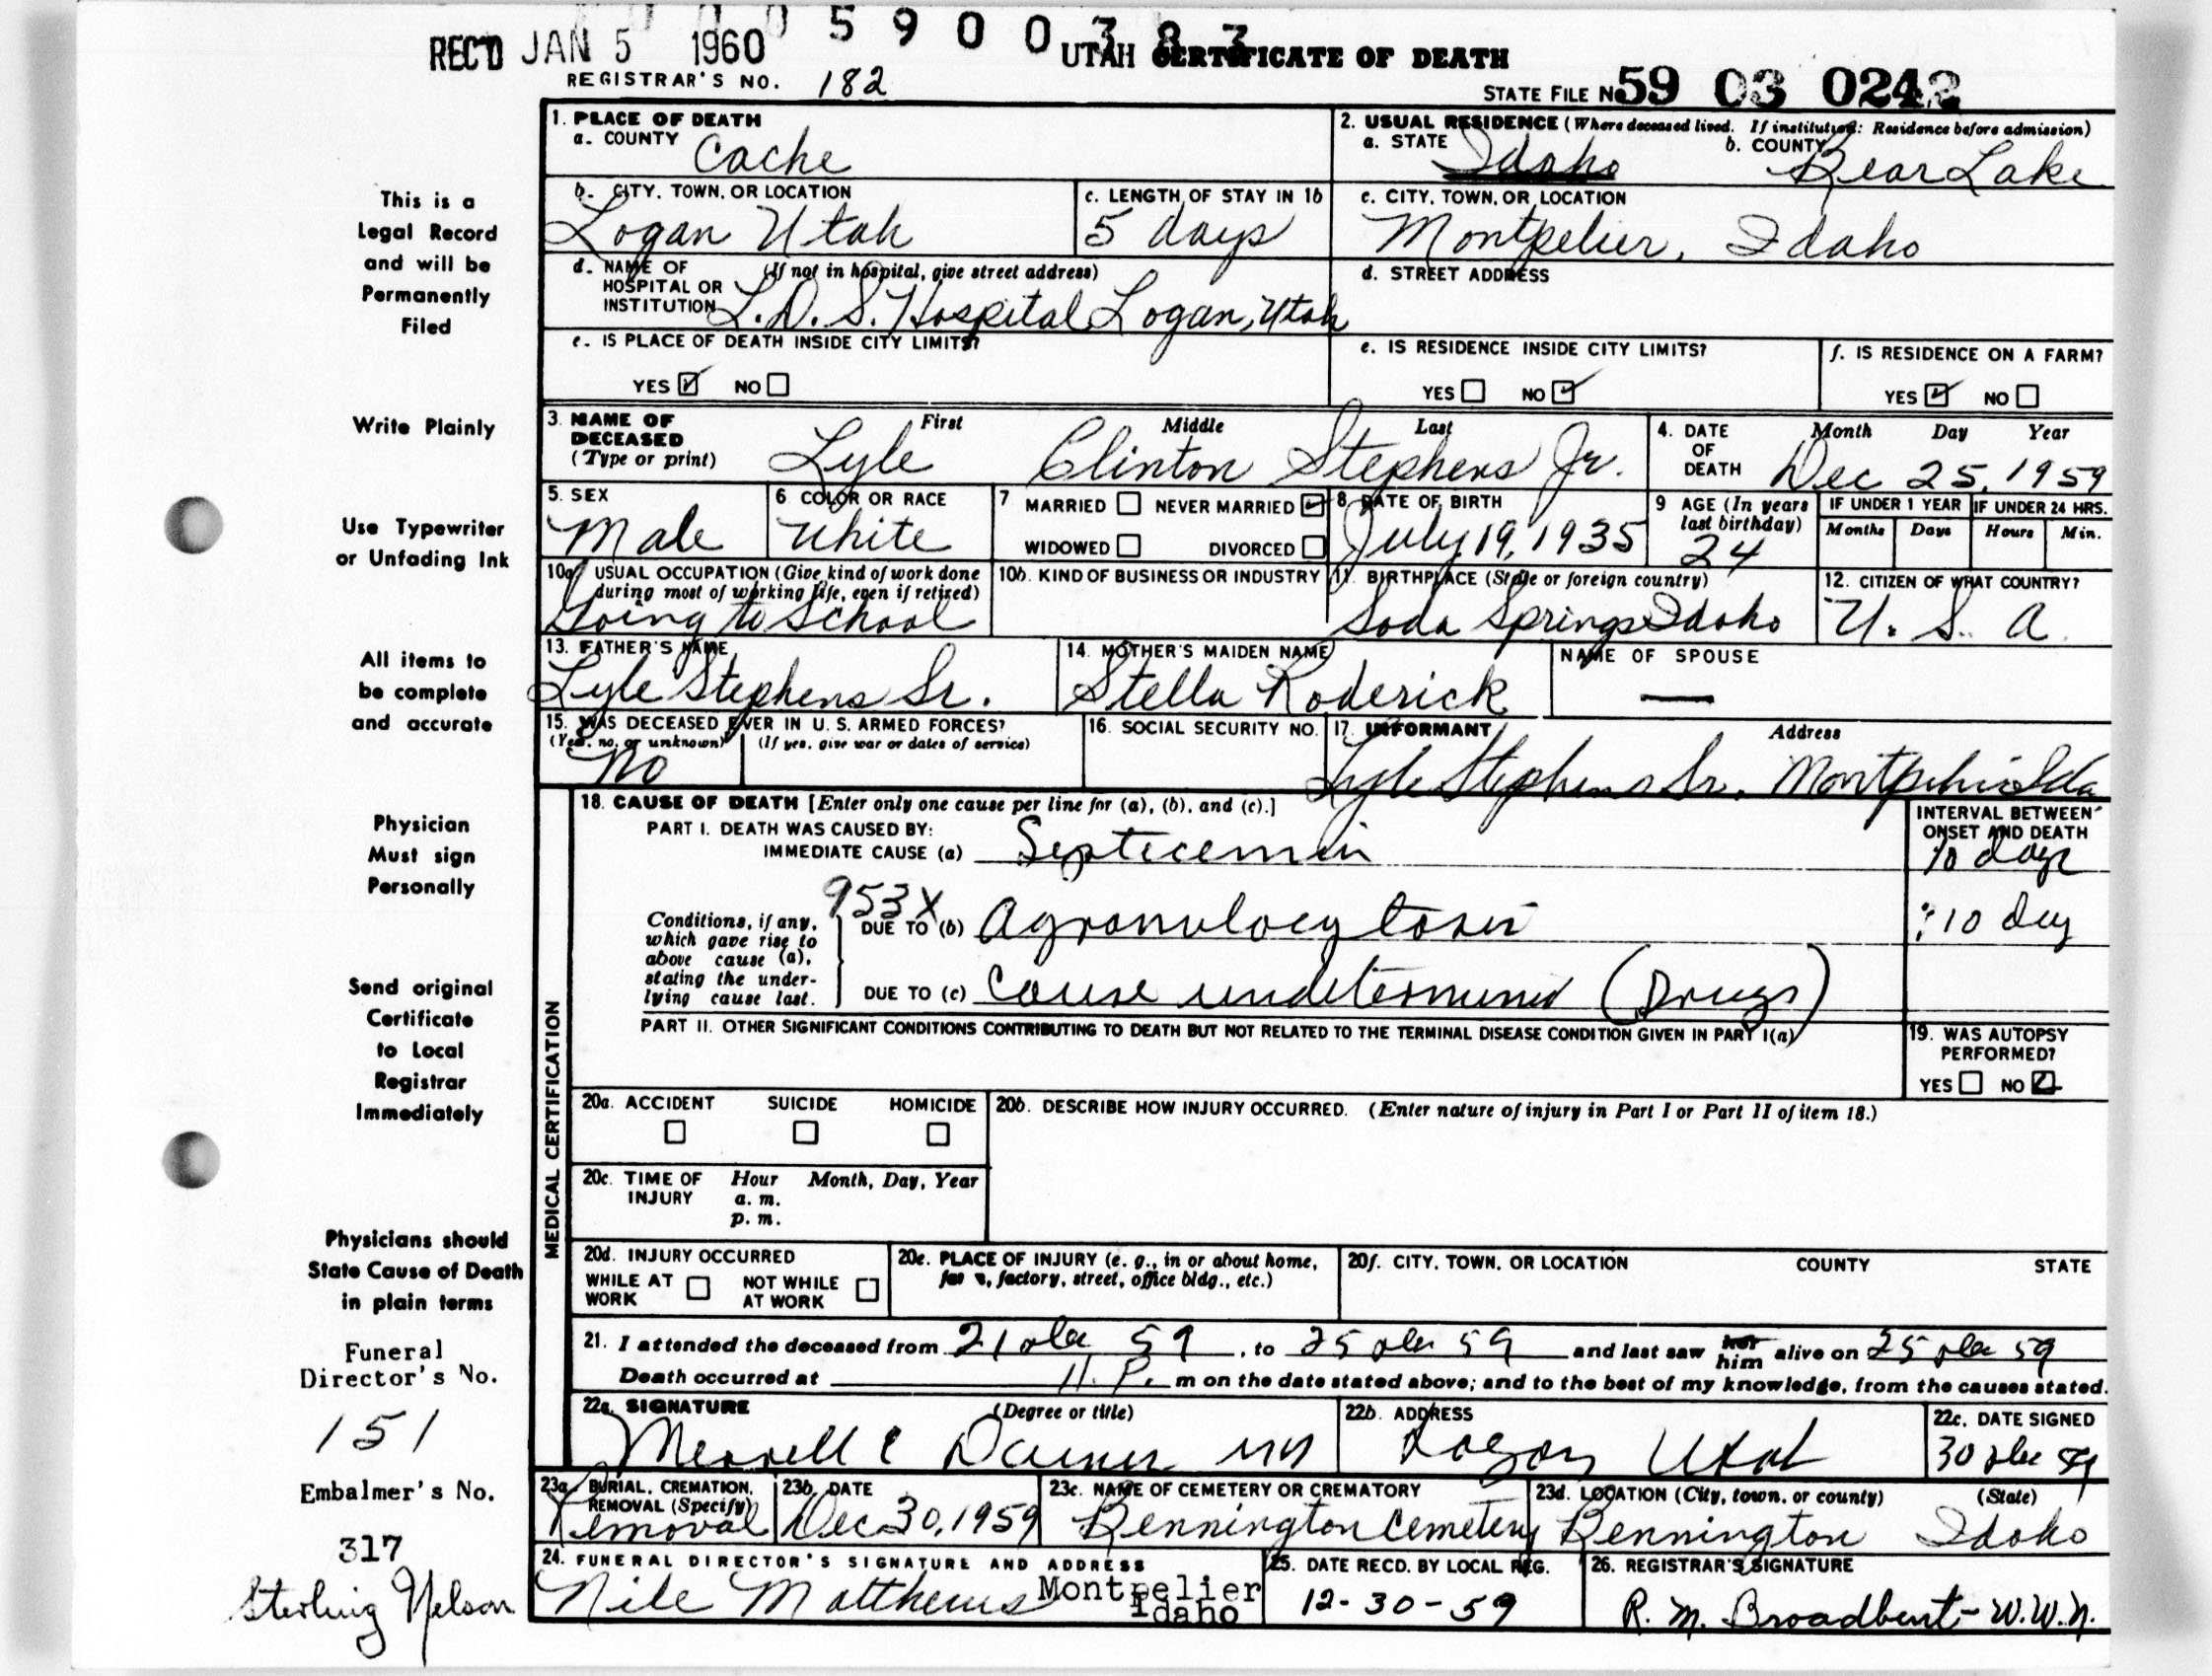 REC'D JAN 5 1960 5 9 0 0 3 8 3 UTAH CERTIFICATE OF DEATH
REGISTRAR'S NO. 182
STATE FILE NO 59 03 0242
1. PLACE OF DEATH
a. COUNTY Cache
2. USUAL RESIDENCE (Where deceased lived. If institution: Residence before admission)
a. STATE Idaho b. COUNTY Bear Lake
b. CITY, TOWN, OR LOCATION Logan Utah
c. LENGTH OF STAY IN 1b 5 days
c. CITY, TOWN, OR LOCATION Montpelier, Idaho
d. NAME OF HOSPITAL OR INSTITUTION (If not in hospital, give street address) L.D.S. Hospital Logan, Utah
d. STREET ADDRESS
e. IS PLACE OF DEATH INSIDE CITY LIMITS?
YES NO
e. IS RESIDENCE INSIDE CITY LIMITS?
YES NO
f. IS RESIDENCE ON A FARM?
YES NO
3. NAME OF DECEASED (Type or print)
First Middle Last
Lyle Clinton Stephens Jr.
4. DATE OF DEATH
Month Day Year
Dec 25, 1959
5. SEX
Male
6 COLOR OR RACE
White
7 MARRIED NEVER MARRIED
WIDOWED DIVORCED
8 DATE OF BIRTH
July 19, 1935
9 AGE (In years last birthday)
24
IF UNDER 1 YEAR
Months Days
IF UNDER 24 HRS.
Hours Min.
10a USUAL OCCUPATION (Give kind of work done during most of working life, even if retired)
Going to School
10b. KIND OF BUSINESS OR INDUSTRY
11. BIRTHPLACE (State or foreign country)
Soda Springs Idaho
12. CITIZEN OF WHAT COUNTRY?
U. S. A.
13. FATHER'S NAME
Lyle Stephens Sr.
14. MOTHER'S MAIDEN NAME
Stella Roderick
NAME OF SPOUSE
—
15. WAS DECEASED EVER IN U. S. ARMED FORCES?
(Yes, no, or unknown) (If yes, give war or dates of service)
No
16. SOCIAL SECURITY NO.
17. INFORMANT Address
Lyle Stephens Sr. Montpelier Ida
MEDICAL CERTIFICATION
18. CAUSE OF DEATH [Enter only one cause per line for (a), (b), and (c).]
PART I. DEATH WAS CAUSED BY:
IMMEDIATE CAUSE (a) Septicemia
INTERVAL BETWEEN ONSET AND DEATH
10 days
953X
Conditions, if any, which gave rise to above cause (a), stating the underlying cause last.
DUE TO (b) Agranulocytosis
? 10 day
DUE TO (c) Cause undetermined (Drugs)
PART II. OTHER SIGNIFICANT CONDITIONS CONTRIBUTING TO DEATH BUT NOT RELATED TO THE TERMINAL DISEASE CONDITION GIVEN IN PART I(a)
19. WAS AUTOPSY PERFORMED?
YES NO
20a. ACCIDENT SUICIDE HOMICIDE
20b. DESCRIBE HOW INJURY OCCURRED. (Enter nature of injury in Part I or Part II of item 18.)
20c. TIME OF INJURY Hour Month, Day, Year
a. m.
p. m.
20d. INJURY OCCURRED
WHILE AT WORK NOT WHILE AT WORK
20e. PLACE OF INJURY (e. g., in or about home, farm, factory, street, office bldg., etc.)
20f. CITY, TOWN, OR LOCATION COUNTY STATE
21. I attended the deceased from 21 Dec 59, to 25 Dec 59 and last saw her him alive on 25 Dec 59
Death occurred at 11. P. m on the date stated above; and to the best of my knowledge, from the causes stated.
22a. SIGNATURE (Degree or title)
Merrell C Daines MD
22b. ADDRESS
Logan Utah
22c. DATE SIGNED
30 Dec 59
23a BURIAL, CREMATION, REMOVAL (Specify)
Removal
23b. DATE
Dec 30, 1959
23c. NAME OF CEMETERY OR CREMATORY
Bennington Cemetery
23d. LOCATION (City, town, or county) (State)
Bennington Idaho
24. FUNERAL DIRECTOR'S SIGNATURE AND ADDRESS
Nile Matthews Montpelier Idaho
25. DATE RECD. BY LOCAL REG.
12-30-59
26. REGISTRAR'S SIGNATURE
R. M. Broadbent - W.W.N.
This is a
Legal Record
and will be
Permanently
Filed
Write Plainly
Use Typewriter
or Unfading Ink
All items to
be complete
and accurate
Physician
Must sign
Personally
Send original
Certificate
to Local
Registrar
Immediately
Physicians should
State Cause of Death
in plain terms
Funeral
Director's No.
151
Embalmer's No.
317
Sterling Nelson